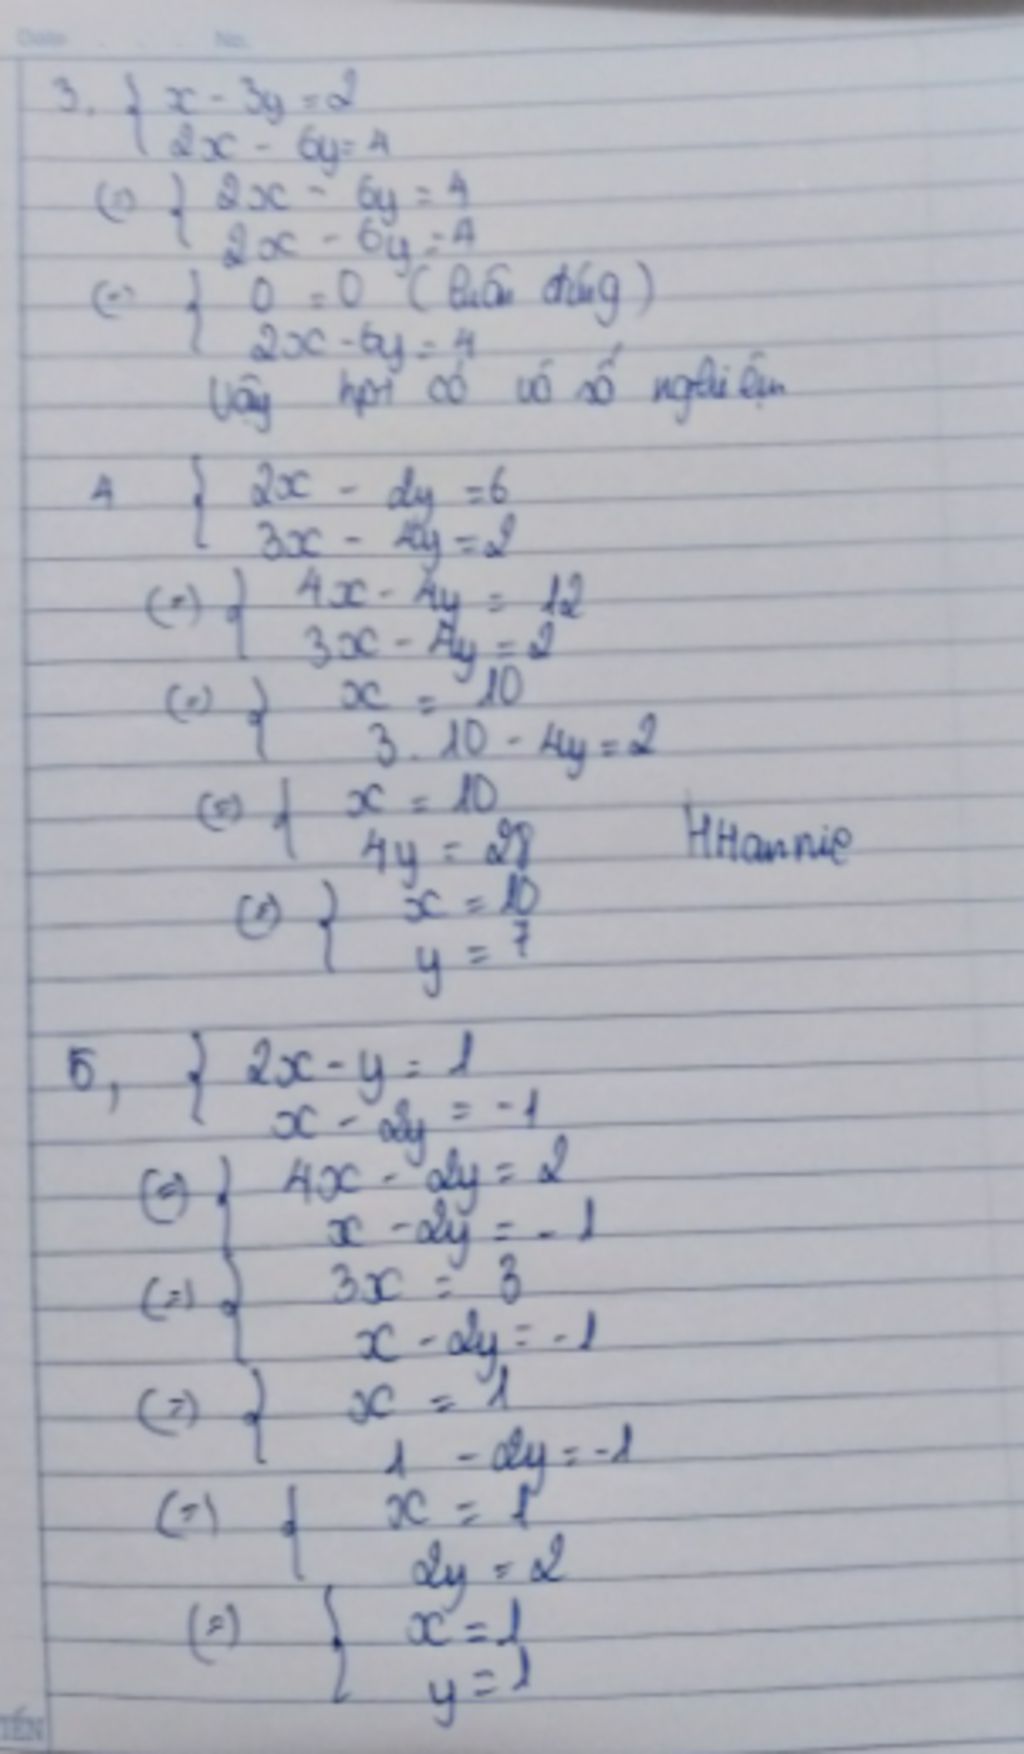 Date No.
3. { x - 3y = 2
2x - 6y = 4
(=) { 2x - 6y = 4
2x - 6y = 4
(=) { 0 = 0 (luôn đúng)
2x - 6y = 4
Vậy hpt có vô số nghiệm
4 { 2x - 2y = 6
3x - 4y = 2
(=) { 4x - 4y = 12
3x - 4y = 2
(=) { x = 10
3. 10 - 4y = 2
(=) { x = 10
4y = 28
HHannie
(=) { x = 10
y = 7
5, { 2x - y = 1
x - 2y = -1
(=) { 4x - 2y = 2
x - 2y = -1
(=) { 3x = 3
x - 2y = -1
(=) { x = 1
1 - 2y = -1
(=) { x = 1
2y = 2
(=) { x = 1
y = 1